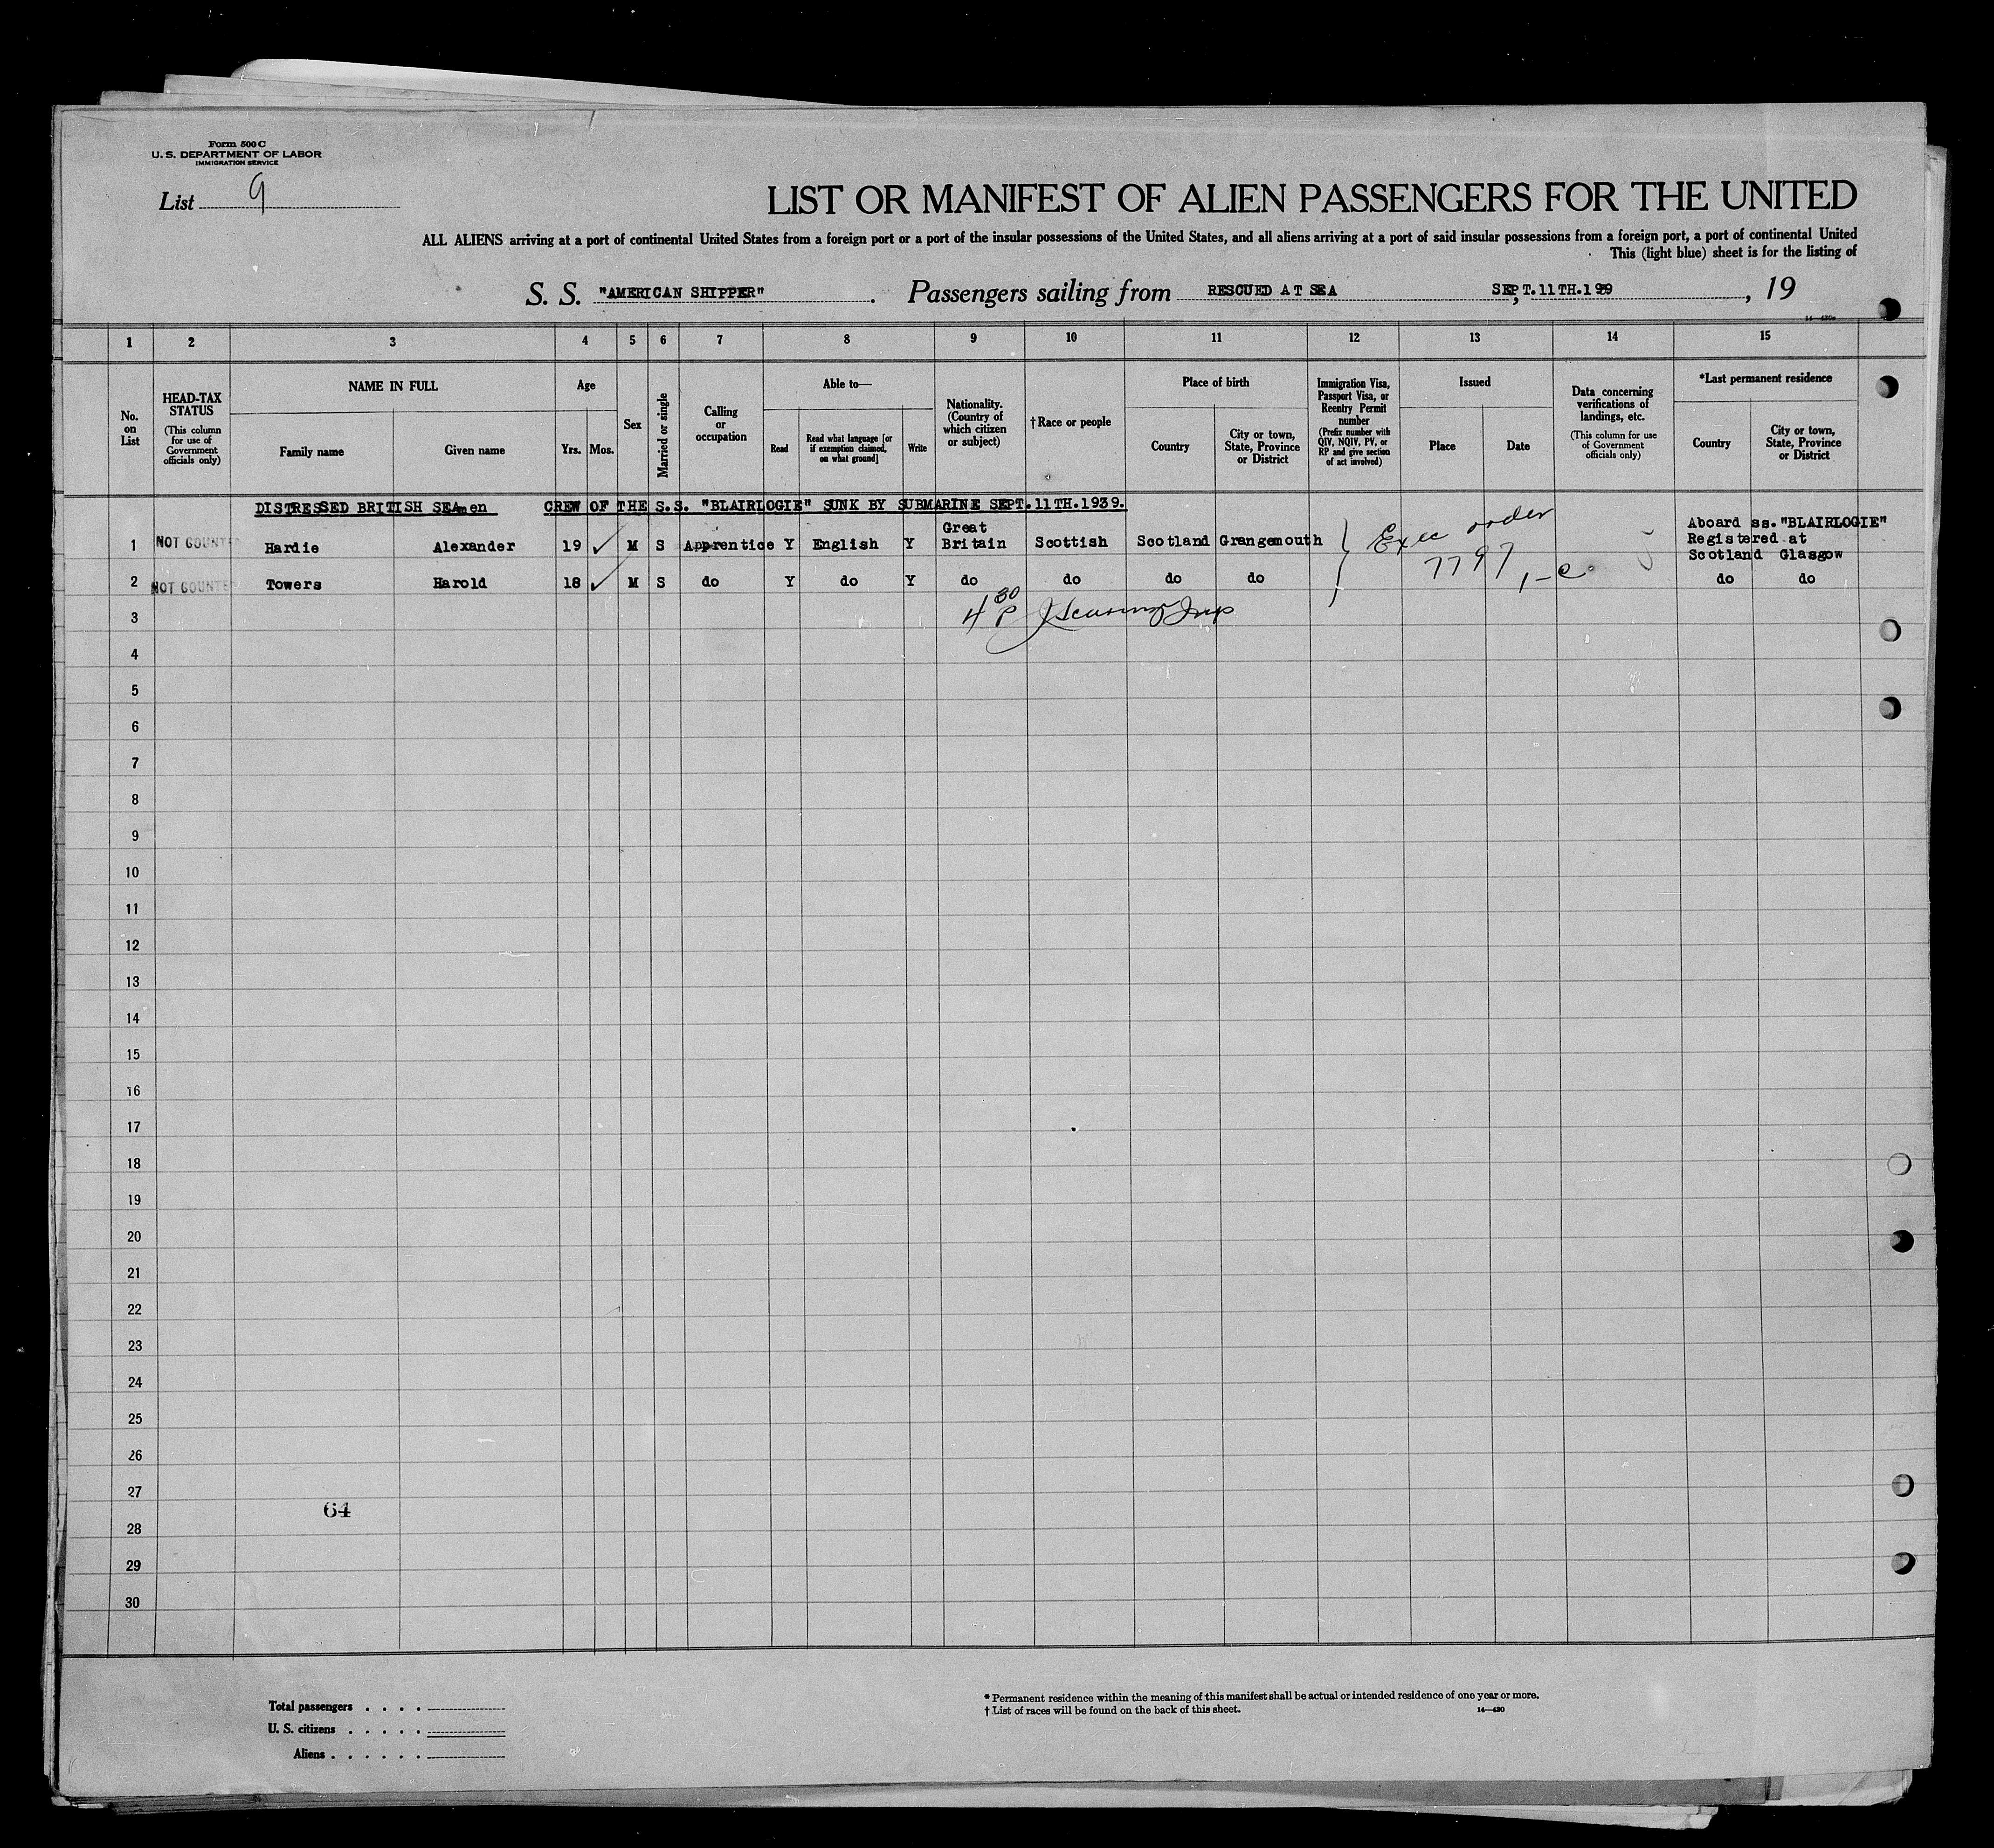 Form 500 C
U. S. DEPARTMENT OF LABOR
IMMIGRATION SERVICE
List 9
LIST OR MANIFEST OF ALIEN PASSENGERS FOR THE UNITED
ALL ALIENS arriving at a port of continental United States from a foreign port or a port of the insular possessions of the United States, and all aliens arriving at a port of said insular possessions from a foreign port, a port of continental United
This (light blue) sheet is for the listing of
S. S. "AMERICAN SHIPPER" . Passengers sailing from RESCUED AT SEA , SEPT.11TH.1939 , 19
14—430a
1 2 3 4 5 6 7 8 9 10 11 12 13 14 15
No. on List
HEAD-TAX STATUS
(This column for use of Government officials only)
NAME IN FULL
Family name
Given name
Age
Yrs. Mos.
Sex
Married or single
Calling or occupation
Able to—
Read
Read what language [or if exemption claimed, on what ground]
Write
Nationality. (Country of which citizen or subject)
† Race or people
Place of birth
Country
City or town, State, Province or District
Immigration Visa, Passport Visa, or Reentry Permit number
(Prefix number with QIV, NQIV, PV, or RP and give section of act involved)
Issued
Place
Date
Data concerning verifications of landings, etc.
(This column for use of Government officials only)
*Last permanent residence
Country
City or town, State, Province or District
DISTRESSED BRITISH SEAmen CREW OF THE S.S. "BLAIRLOGIE" SUNK BY SUBMARINE SEPT.11TH.1939.
1 NOT COUNTE Hardie Alexander 19 ✓ M S Apprentice Y English Y Great Britain Scottish Scotland Grangemouth Exec order 7797 1-c Aboard ss."BLAIRLOGIE" Registered at Scotland Glasgow
2 NOT COUNTE Towers Harold 18 ✓ M S do Y do Y do do do do do do
3 4 30 P
4
5
6
7
8
9
10
11
12
13
14
15
16
17
18
19
20
21
22
23
24
25
26
27
64
28
29
30
Total passengers . . . .
U. S. citizens . . . . .
Aliens . . . . . .
* Permanent residence within the meaning of this manifest shall be actual or intended residence of one year or more.
† List of races will be found on the back of this sheet.
14—430